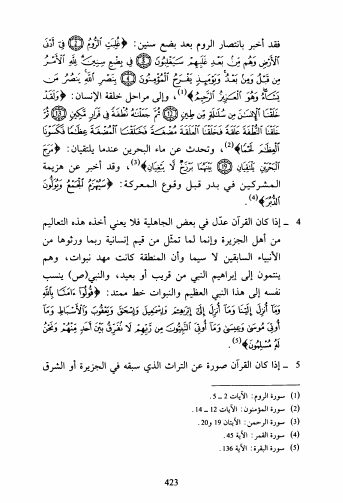 فقد أخبر بانتصار الروم بعد بضع سنين: ﴿غُلِبَتِ الرُّومُ ۝ فِي أَدْنَى
الْأَرْضِ وَهُم مِّنْ بَعْدِ غَلَبِهِمْ سَيَغْلِبُونَ ۝ فِي بِضْعِ سِنِينَ لِلَّهِ الْأَمْرُ
مِن قَبْلُ وَمِنْ بَعْدُ وَيَوْمَئِذٍ يَفْرَحُ الْمُؤْمِنُونَ ۝ بِنَصْرِ اللَّهِ يَنصُرُ مَن
يَشَاءُ وَهُوَ الْعَزِيزُ الرَّحِيمُ﴾(1)، وإلى مراحل خلقة الإنسان: ﴿وَلَقَدْ
خَلَقْنَا الْإِنسَانَ مِن سُلَالَةٍ مِّن طِينٍ ۝ ثُمَّ جَعَلْنَاهُ نُطْفَةً فِي قَرَارٍ مَّكِينٍ ۝ ثُمَّ
خَلَقْنَا النُّطْفَةَ عَلَقَةً فَخَلَقْنَا الْعَلَقَةَ مُضْغَةً فَخَلَقْنَا الْمُضْغَةَ عِظَامًا فَكَسَوْنَا
الْعِظَامَ لَحْمًا﴾(2)، وتحدث عن ماء البحرين عندما يلتقيان: ﴿مَرَجَ
الْبَحْرَيْنِ يَلْتَقِيَانِ ۝ بَيْنَهُمَا بَرْزَخٌ لَّا يَبْغِيَانِ﴾(3)، وقد أخبر عن هزيمة
المشركين في بدر قبل وقوع المعركة: ﴿سَيُهْزَمُ الْجَمْعُ وَيُوَلُّونَ
الدُّبُرَ﴾(4).
4 ـ إذا كان القرآن عدّل في بعض الجاهلية فلا يعني أخذه هذه التعاليم
من أهل الجزيرة وإنما لما تمثّل من قيم إنسانية ربما ورثوها من
الأنبياء السابقين لا سيما وأن المنطقة كانت مهد نبوات، وهم
ينتمون إلى إبراهيم النبي من قريب أو بعيد، والنبي(ص) ينسب
نفسه إلى هذا النبي العظيم والنبوات خط ممتد: ﴿قُولُوا آمَنَّا بِاللَّهِ
وَمَا أُنزِلَ إِلَيْنَا وَمَا أُنزِلَ إِلَى إِبْرَاهِيمَ وَإِسْمَاعِيلَ وَإِسْحَاقَ وَيَعْقُوبَ وَالْأَسْبَاطِ وَمَا
أُوتِيَ مُوسَى وَعِيسَى وَمَا أُوتِيَ النَّبِيُّونَ مِن رَّبِّهِمْ لَا نُفَرِّقُ بَيْنَ أَحَدٍ مِّنْهُمْ وَنَحْنُ
لَهُ مُسْلِمُونَ﴾(5).
5 ـ إذا كان القرآن صورة عن التراث الذي سبقه في الجزيرة أو الشرق
(1) سورة الروم: الآيات 2 ـ 5.
(2) سورة المؤمنون: الآيات 12 ـ 14.
(3) سورة الرحمن: الآيتان 19 و20.
(4) سورة القمر: الآية 45.
(5) سورة البقرة: الآية 136.
423